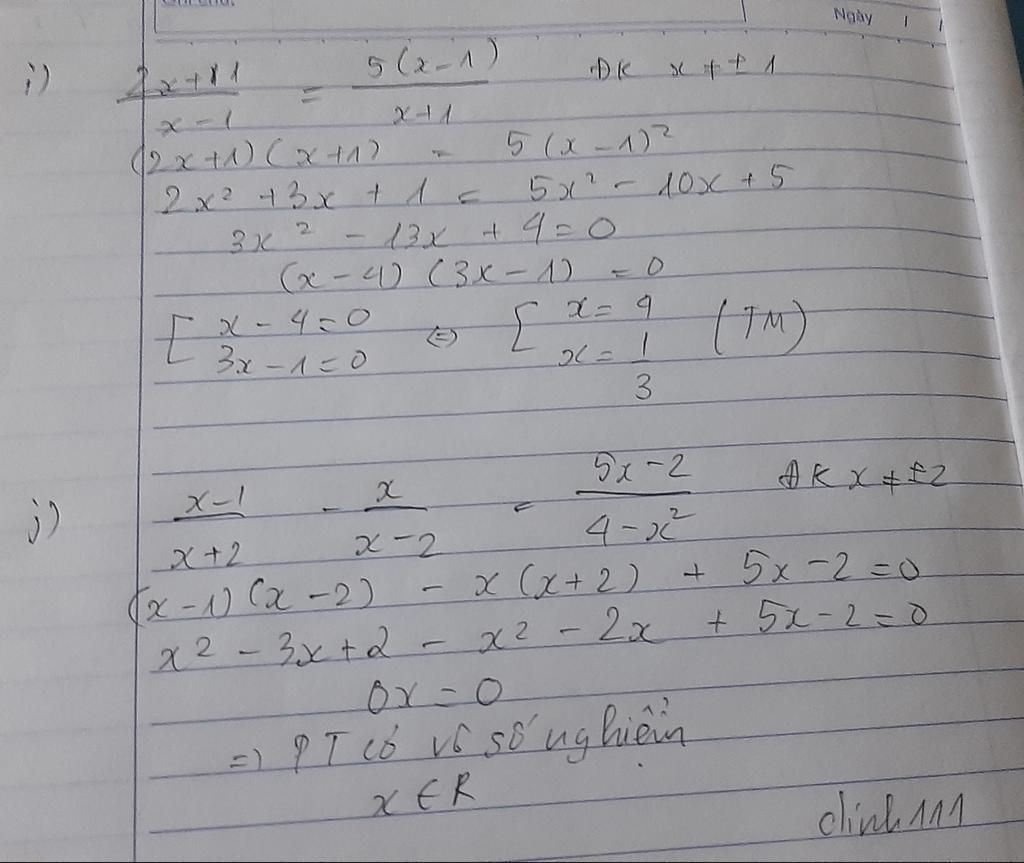 Ngày / /
i) 2x+1/x-1 = 5(x-1)/x+1 ĐK x ≠ ±1
(2x+1)(x+1) = 5(x-1)²
2x² + 3x + 1 = 5x² - 10x + 5
3x² - 13x + 4 = 0
(x-4)(3x-1) = 0
[ x-4=0 ⇔ [ x=4 (TM)
3x-1=0 x=1/3
j) x-1/x+2 - x/x-2 = 5x-2/4-x² ĐK x ≠ ±2
(x-1)(x-2) - x(x+2) + 5x-2=0
x² - 3x+2 - x² - 2x + 5x-2=0
0x = 0
=> PT có vô số nghiệm
x ∈ R
dinh111